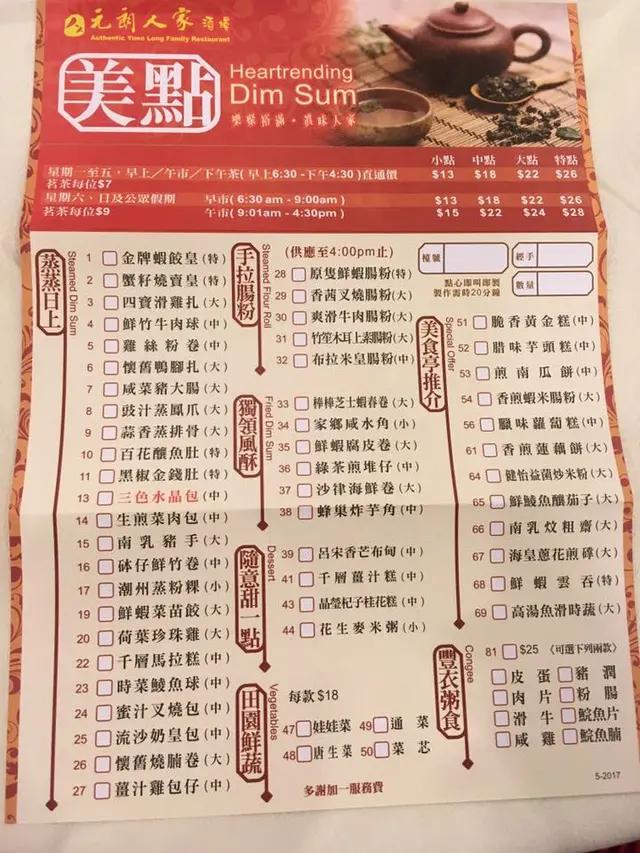 元朗人家酒樓
Authentic Yuen Long Family Restaurant
美點
Heartrending
Dim Sum
小點 中點 大點 特點
星期一至五，早上／午市／下午茶(早上6:30 -下午4:30)直通價 $13 $18 $22 $26
茗茶每位$7
星期六、日及公眾假期 早市(6:30 am - 9:00am) $13 $18 $22 $26
茗茶每位$9 午市(9:01am - 4:30pm) $15 $22 $24 $28
蒸蒸日上
Steamed Dim Sum
1 金牌蝦餃皇(特)
2 蟹籽燒賣皇(特)
3 四寶滑雞扎(大)
4 鮮竹牛肉球(中)
5 雞絲粉卷(中)
6 懷舊鴨腳扎(大)
7 咸菜豬大腸(大)
8 豉汁蒸鳳爪(大)
9 蒜香蒸排骨(大)
10 百花釀魚肚(特)
11 黑椒金錢肚(特)
13 三色水晶包(中)
14 生煎菜肉包(中)
15 南乳豬手(大)
16 砵仔鮮竹卷(中)
17 潮州蒸粉粿(小)
19 鮮蝦菜苗餃(大)
20 荷葉珍珠雞(大)
22 千層馬拉糕(中)
23 時菜鯪魚球(中)
24 蜜汁叉燒包(中)
25 流沙奶皇包(中)
26 懷舊燒腩卷(大)
27 薑汁雞包仔(中)
手拉腸粉
Steamed Flour Roll
(供應至4:00pm止)
28 原隻鮮蝦腸粉(特)
29 香茜叉燒腸粉(大)
30 爽滑牛肉腸粉(大)
31 竹笙木耳上素腸粉(大)
32 布拉米皇腸粉(中)
獨領風酥
Fried Dim Sum
33 棒棒芝士蝦春卷(大)
34 家鄉咸水角(小)
35 鮮蝦腐皮卷(大)
36 綠茶煎堆仔(中)
37 沙律海鮮卷(大)
38 蜂巢炸芋角(中)
隨意甜一點
Dessert
39 呂宋香芒布甸(中)
41 千層薑汁糕(中)
43 晶瑩杞子桂花糕(中)
44 花生麥米粥(小)
田園鮮蔬
Vegetables
每款$18
47 娃娃菜 49 通菜
48 唐生菜 50 菜芯
多謝加一服務費
檯號
經手
點心即叫即製
製作需時20分鐘
數量
美食亭推介
Special Offer
51 脆香黃金糕(中)
52 腊味芋頭糕(中)
53 煎南瓜餅(中)
54 香煎蝦米腸粉(大)
56 臘味蘿蔔糕(中)
61 香煎蓮藕餅(大)
64 健怡益菌炒米粉(大)
65 鮮鯪魚釀茄子(大)
66 南乳炆粗齋(大)
67 海皇蔥花煎𦧲(大)
68 鮮蝦雲吞(特)
69 高湯魚滑時蔬(大)
豐衣粥食
Congee
81 $25 (可選下列兩款)
皮蛋 豬潤
肉片 粉腸
滑牛 鯇魚片
咸雞 鯇魚腩
5-2017